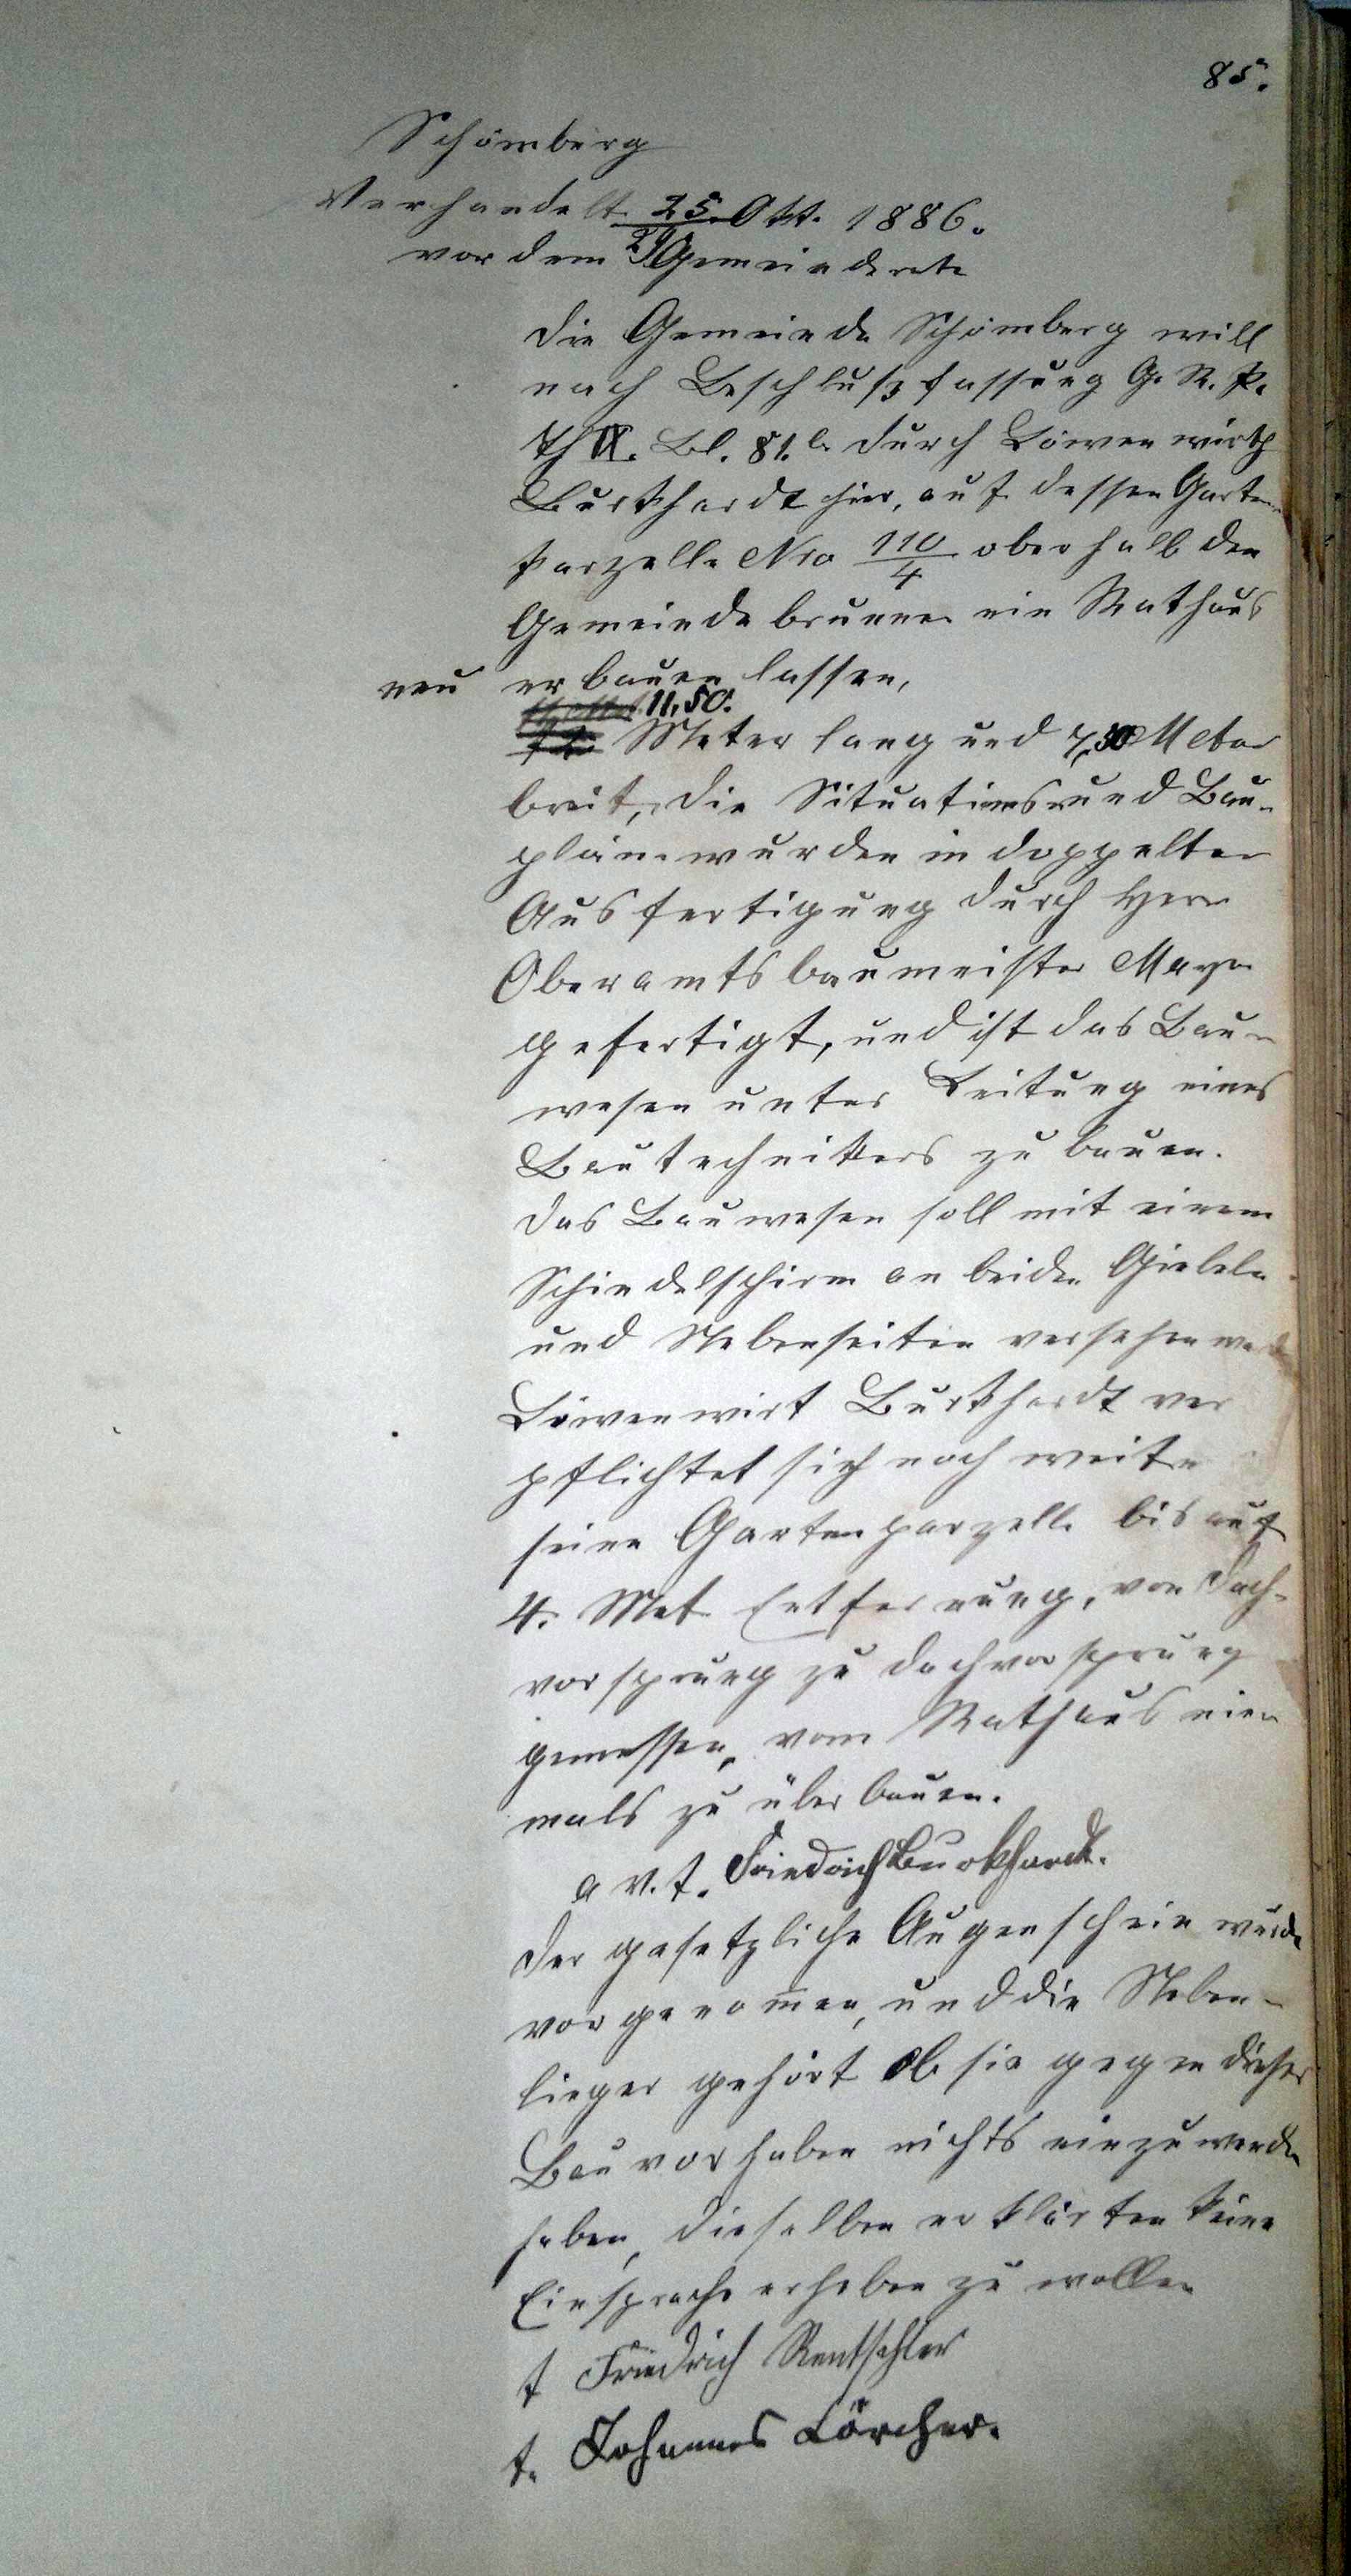 85.
Schömberg
Verhandelt 25. Okt. 1886.
vor dem Gemeinderate
Die Gemeinde Schömberg will
nach Beschlußfassung G. R. P.
Th IX. Bl. 81.b durch Löwenwirth
Burkhardt hier, auf dessen Garten
Parzelle Nro 110/4 oberhalb den
Gemeindebrunnen ein Rathaus
neu erbauen lassen,
11,50.
Meter lang und 7,50 Meter
breit, die Situations und Bau-
pläne wurden in doppelter
Ausfertigung durch Herrn
Oberamtsbaumeister Mayer
gefertigt, und ist das Bau-
wesen unter Leitung eines
Bautechnikers zu bauen.
Das Bauwesen soll mit einem
Schindelschirm an beiden Giebeln
und Nebenseiten versehen
Löwenwirt Burkhardt ver
pflichtet sich noch weiter
seine Gartenparzelle bis auf
4. Met Entfernung, von Dach-
vorsprung zu Dachvorsprung
gemessen, vom Rathaus nie-
mals zu überbauen.
a v. t. Friedrich Burkhardt.
Der gesetzliche Augenschein wurde
vorgenommen, und die Neben-
lieger gehört ob sie gegen dieses
Bauvorhaben nichts einzuwenden
haben, dieselben erklärten keine
Einsprache erheben zu wollen
t Friedrich Rentschler
t. Johannes Lörcher.